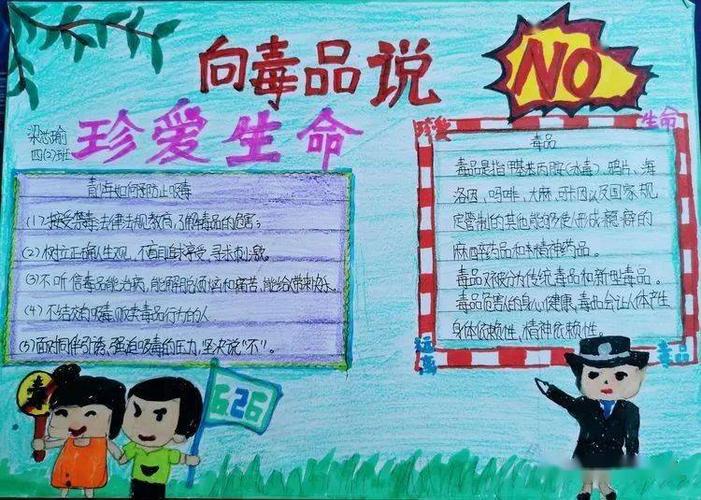 向毒品说 NO
珍爱生命
四(2)班
青少年如何防止吸毒
(1)接受禁毒法律法规教育,了解毒品的危害;
(2)树立正确人生观,不盲目追求享受,寻求刺激。
(3)不听信毒品能治病,能解脱烦恼和痛苦,能给带来快乐
(4)不结交有吸毒、贩卖毒品行为的人
(5)面对同伴引诱、强迫吸毒的压力,坚决说“不”。
珍爱 生命
毒品
毒品是指甲基苯丙胺(冰毒)、鸦片、海
洛因、吗啡、大麻、可卡因以及国家规
定管制的其他能够使人形成瘾癖的
麻醉药品和精神药品。
毒品又被分为传统毒品和新型毒品。
毒品危害人的身心健康,毒也会让人体产生
身体依赖性,精神依赖性。
远离 毒品
6.26